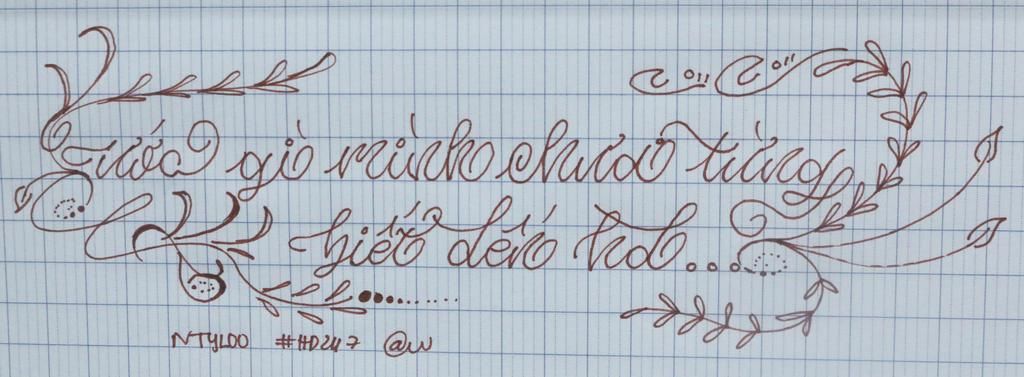 Ước gì mình chưa từng
biết đến nhau...
NTYLOO #HD247 @w